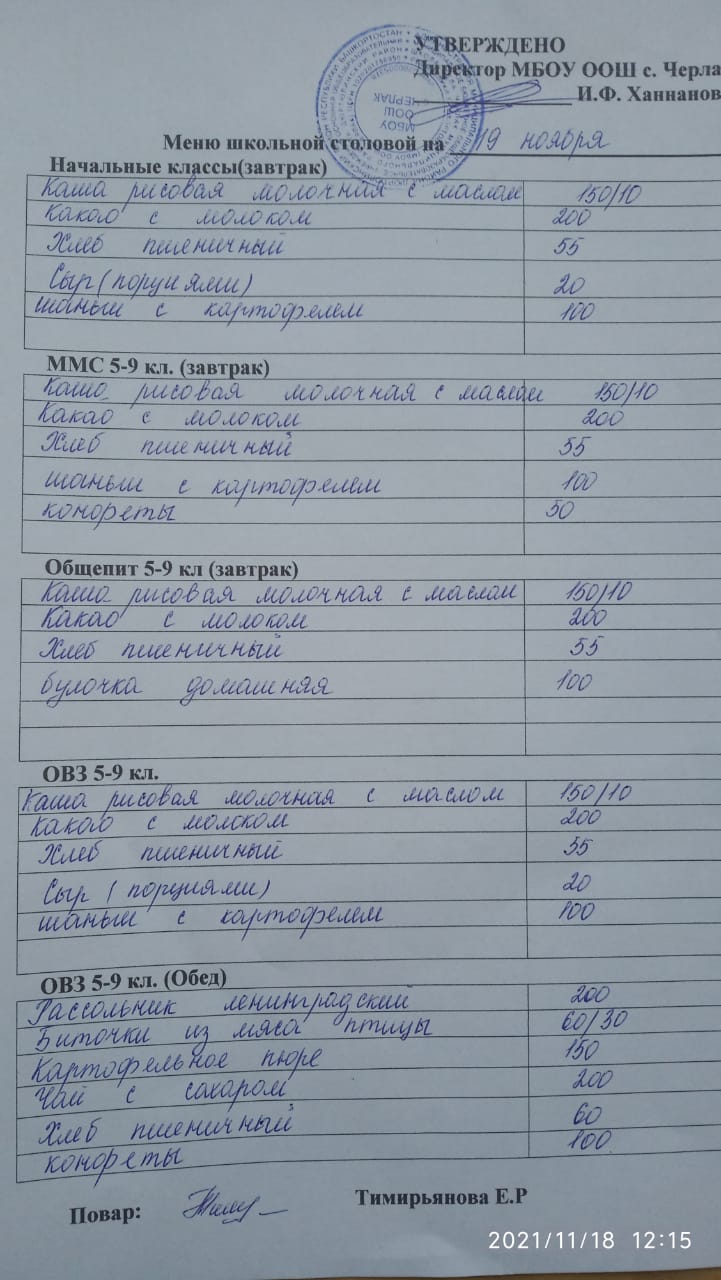 УТВЕРЖДЕНО
Директор МБОУ ООШ с. Черла
И.Ф. Ханнанов
Меню школьной столовой на 19 ноября
МБОУ
ООШ
ЧЕРЛАК
Начальные классы(завтрак)
Каша рисовая молочная с маслом 150/10
Какао с молоком 200
Хлеб пшеничный 55
Сыр (порциями) 20
шаньи с картофелем 100
ММС 5-9 кл. (завтрак)
Каша рисовая молочная с маслом 150/10
Какао с молоком 200
Хлеб пшеничный 55
шаньи с картофелем 100
конфеты 50
Общепит 5-9 кл (завтрак)
Каша рисовая молочная с маслом 150/10
Какао с молоком 200
Хлеб пшеничный 55
булочка домашняя 100
ОВЗ 5-9 кл.
Каша рисовая молочная с маслом 150/10
Какао с молоком 200
Хлеб пшеничный 55
Сыр (порциями) 20
шаньи с картофелем 100
ОВЗ 5-9 кл. (Обед)
Рассольник ленинградский 200
Биточки из мяса птицы 60/30
Картофельное пюре 150
Чай с сахаром 200
Хлеб пшеничный 60
конфеты 100
Повар: Тимирьянова Е.Р
2021/11/18 12:15